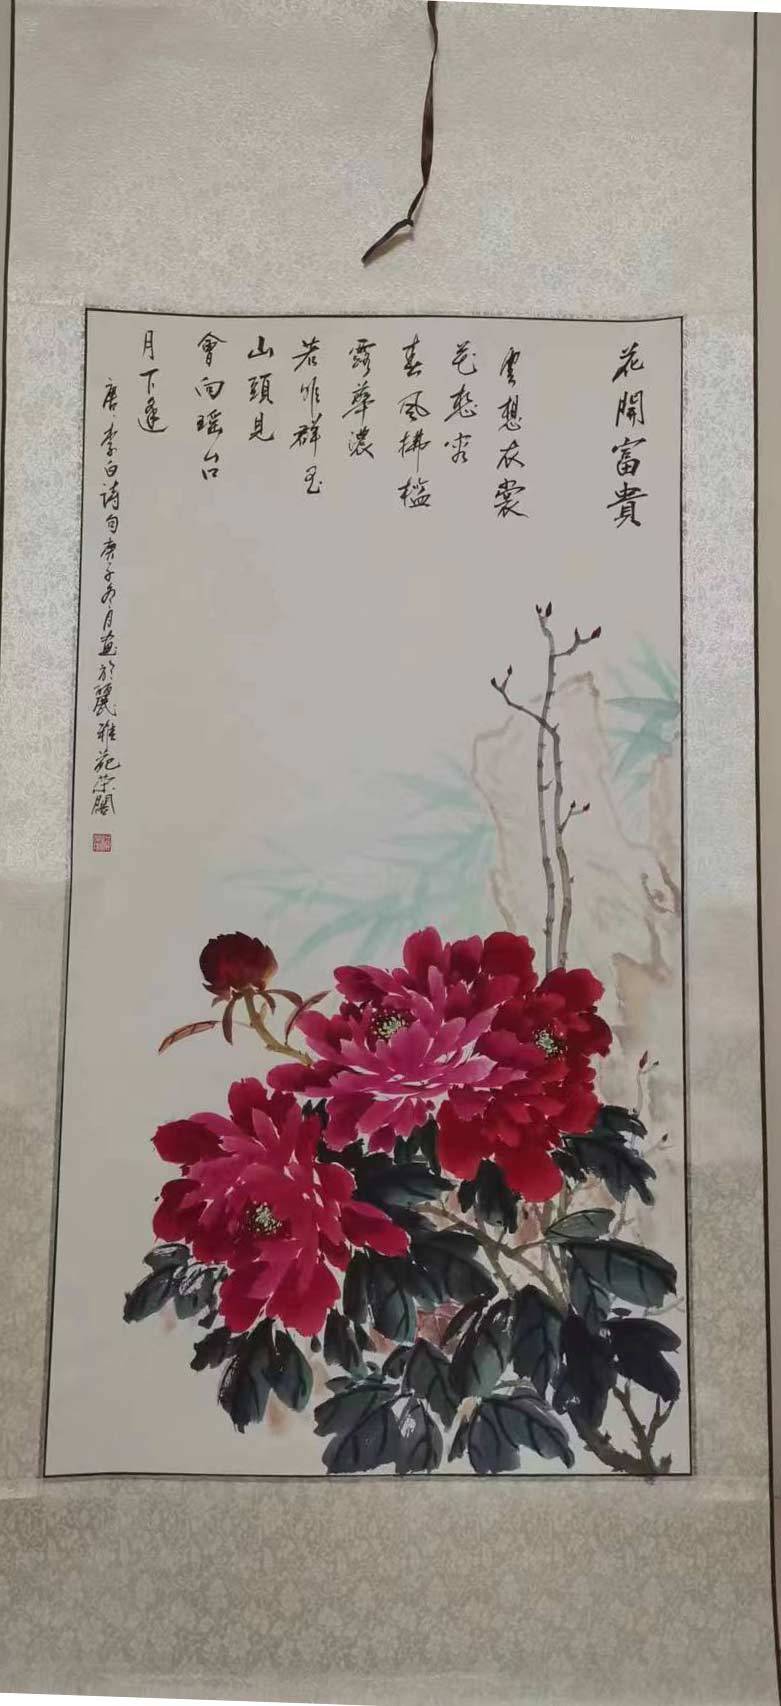 花開富貴
雲想衣裳
花想容
春風拂檻
露華濃
若非群玉
山頭見
會向瑶台
月下逢
唐李白詩句庚子冬月畫於麗雅苑